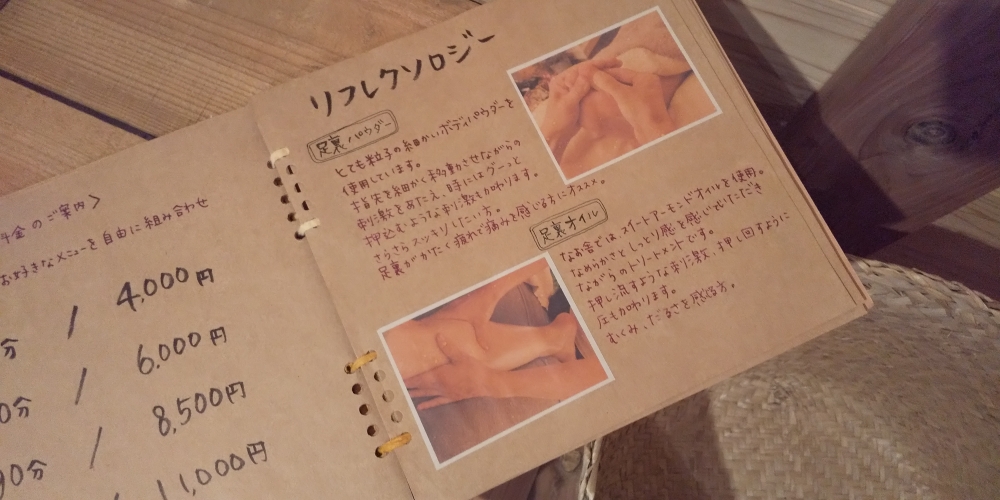 料金のご案内〉
お好きなメニューを自由に組み合わせ
分 / 4,000円
0分 / 6,000円
90分 / 8,500円
/ 11,000円
リフレクソロジー
足裏パウダー
とても粒子の細かいボディパウダーを
使用しています。
指先を細かく移動させながらの
刺激を与え、時にはグーっと
押込むような刺激も加わります。
さらさらスッキリしたい方。
足裏がかたく疲れて痛みを感じる方にオススメ。
足裏オイル
なお舎では、スイートアーモンドオイルを使用。
なめらかさとしっとり感を感じていただき
ながらのトリートメントです。
押し流すような刺激、押し回すように
圧も加わります。
むくみ、だるさを感じる方。